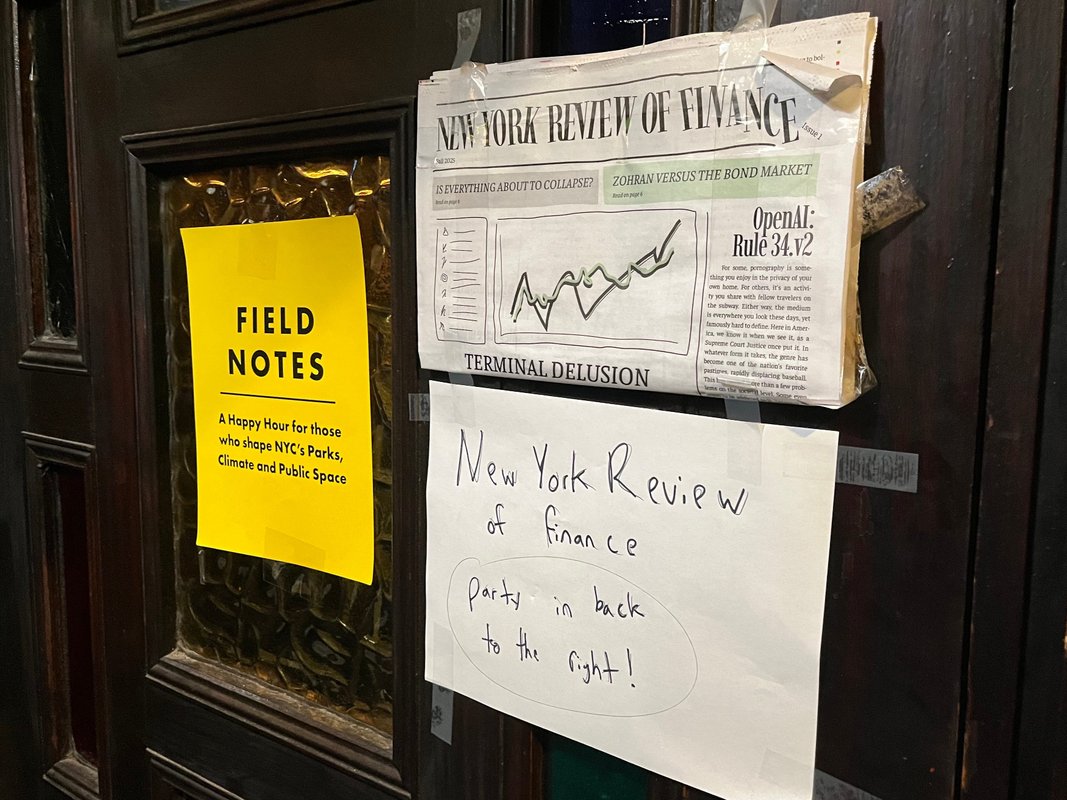 FIELD
NOTES
A Happy Hour for those
who shape NYC's Parks,
Climate and Public Space
NEW YORK REVIEW OF FINANCE
Issue 1
Fall 2025
IS EVERYTHING ABOUT TO COLLAPSE?
Read on page 6
ZOHRAN VERSUS THE BOND MARKET
Read on page 6
OpenAI:
Rule 34.v2
For some, pornography is some-
thing you enjoy in the privacy of your
own home. For others, it's an activi-
ty you share with fellow travelers on
the subway. Either way, the medium
is everywhere you look these days, yet
famously hard to define. Here in Amer-
ica, we know it when we see it, as a
Supreme Court Justice once put it. In
whatever form it takes, the genre has
become one of the nation's favorite
pastimes, rapidly displacing baseball.
This more than a few prob-
lems on the level. Some even
TERMINAL DELUSION
New York Review
of finance
party in back
to the right!